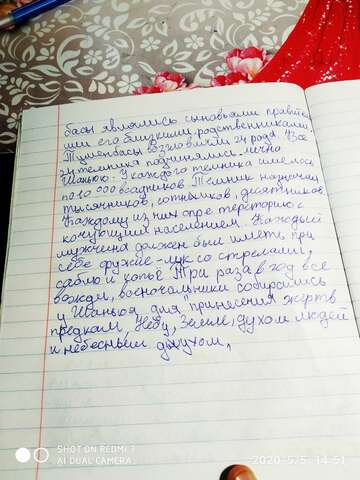 басы являлись сыновьями правите
или его близкими родственниками.
Туменбасы возглавили 24 рода. Все
24 темника подчинялись лично
Шаньюю. У каждого темника имелось
по 10 000 всадников. Темник назначал
тысячников, сотников, десятников.
Каждому из них опре территорию с
кочующим населением. Каждый
мужчина должен был иметь при
себе оружие - лук со стрелами,
саблю и копьё. Три раза в год все
вожди, военочальники собирались
у Шаньюя для "принисения жертв
предкам, Небу, Земле, духом людей
и небесным духом,
SHOT ON REDMI 7
AI DUAL CAMERA
2020/5/5 14:51